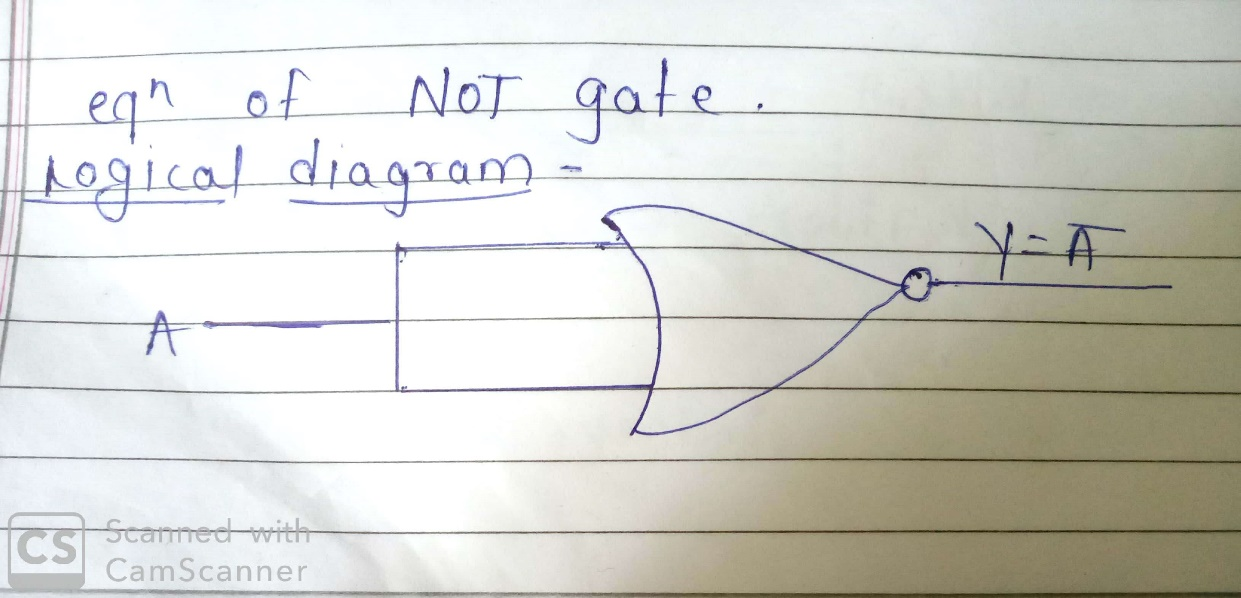 eqn of NOT gate.
Logical diagram -
Y = A̅
A
CS Scanned with
CamScanner